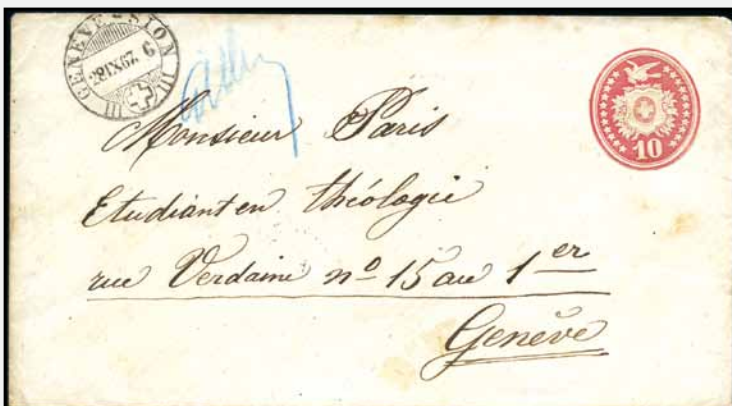 GENEVE-SION
28 IX 67. 6
III III
10
Monsieur Paris
Etudiant en théologie
rue Verdaine nº 15 au 1er
Genève